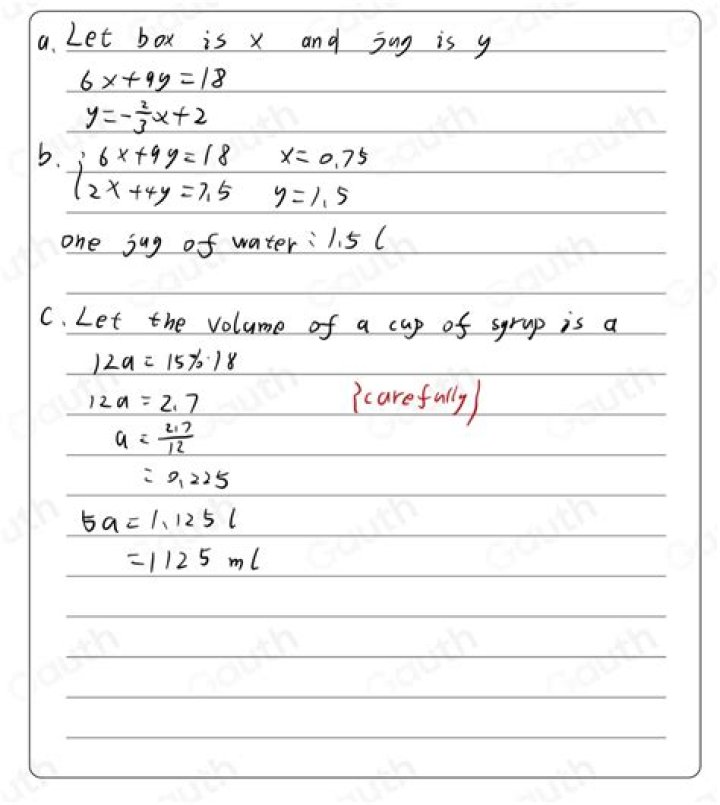 a. Let box is x and jug is y
6x+9y=18
y=-2/3x+2
b. { 6x+9y=18 x=0.75
2x+4y=7.5 y=1.5
one jug of water: 1.5 l
c. Let the volume of a cup of syrup is a
12a = 15%·18
12a = 2.7 {carefully}
a = 2.7/12
= 0.225
5a = 1.125 l
= 1125 ml